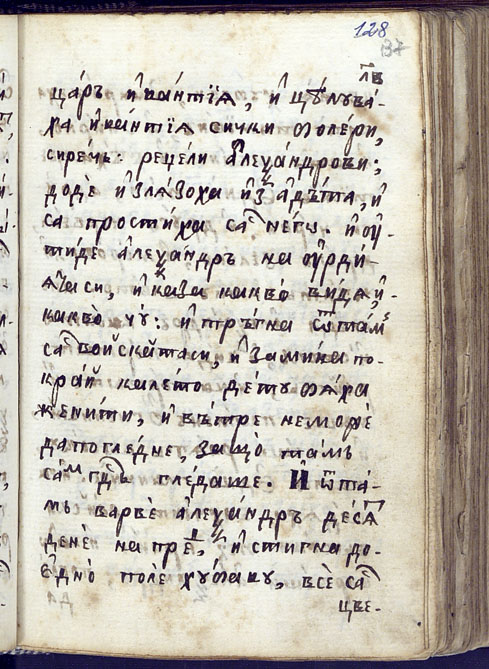 128
37
л҃в
ца́ръ и҆ ка́нтїѧ, и҆ цꙋ́лꙋва-
ха и҆ ка́нтїѧ сички ѳоле́ри,
сире́чь: рецели але҆ѯа́ндрови;
додѐ и҆злѧ́зоха и҆з̾ а́дъта, и҆
са прости́ха са̾ не́гꙋ. и҆ ѹ҆-
ти́де але҆ѯа́ндръ на ѹ҆рди́-
ѧ҆та си, и҆ ка́за какво̀ ви́дѧ, и҆-
какво̀ чꙋ̀: и҆ тръ́гна ѿта́мъ
са̾ во́йска́та си, и҆ замина по-
кра́й кале́то де́тꙋ ѳѧ́ха
жени́ти, и҆ въ́тре не морѐ
да погле́дне, защо̀ та́мь
са́мъ гдⷭ҇ь гле́даше. И҆ ѿта́-
мь варвѐ але҆ѯа́ндръ де́сѧⷮ
денѐ на преⷣ, и҆ сти́гна до-
е҆дно̀ поле хꙋ́бавꙋ, всѐ са̾
цве-